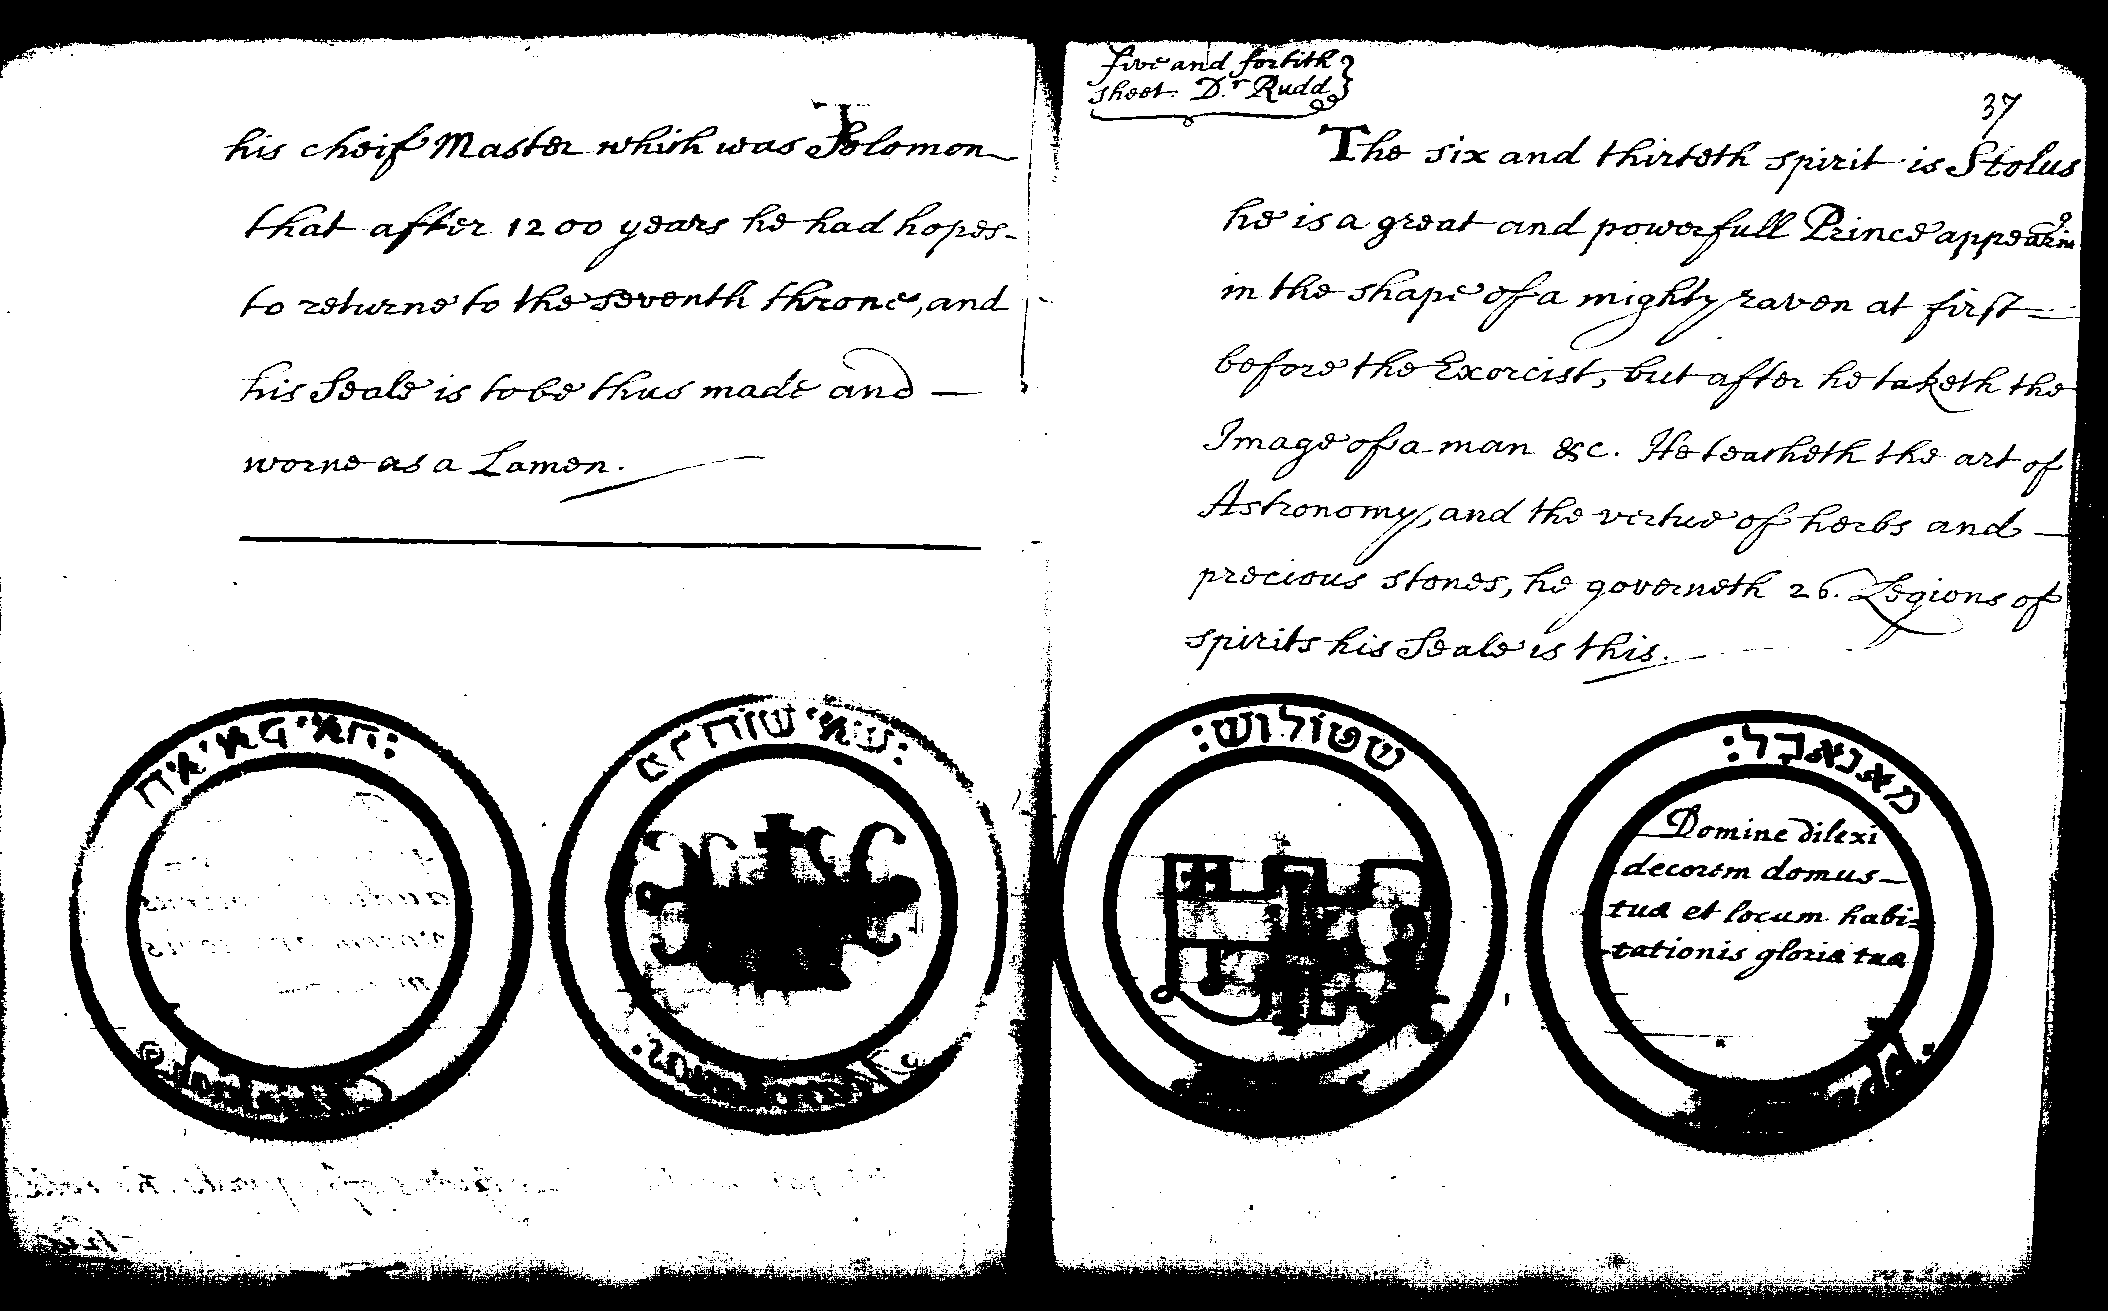 his cheif Master which was Solomon
that after 1200 years he had hopes
to returne to the seventh throne, and
his Seale is to be thus made and —
worne as a Lamen.
five and fortith
sheet. Dr Rudd
37
The six and thirteth spirit is Stolus
he is a great and powerfull Prince appearing
in the shape of a mighty raven at first
before the Exorcist, but after he taketh the
Image of a man &c. He teacheth the art of
Astronomy, and the vertue of herbs and —
precious stones, he governeth 26. Legions of
spirits his Seale is this.
שטולוש:
מאנאקל:
Domine dilexi
decorem domus —
tua et locum habi-
tationis gloria tua